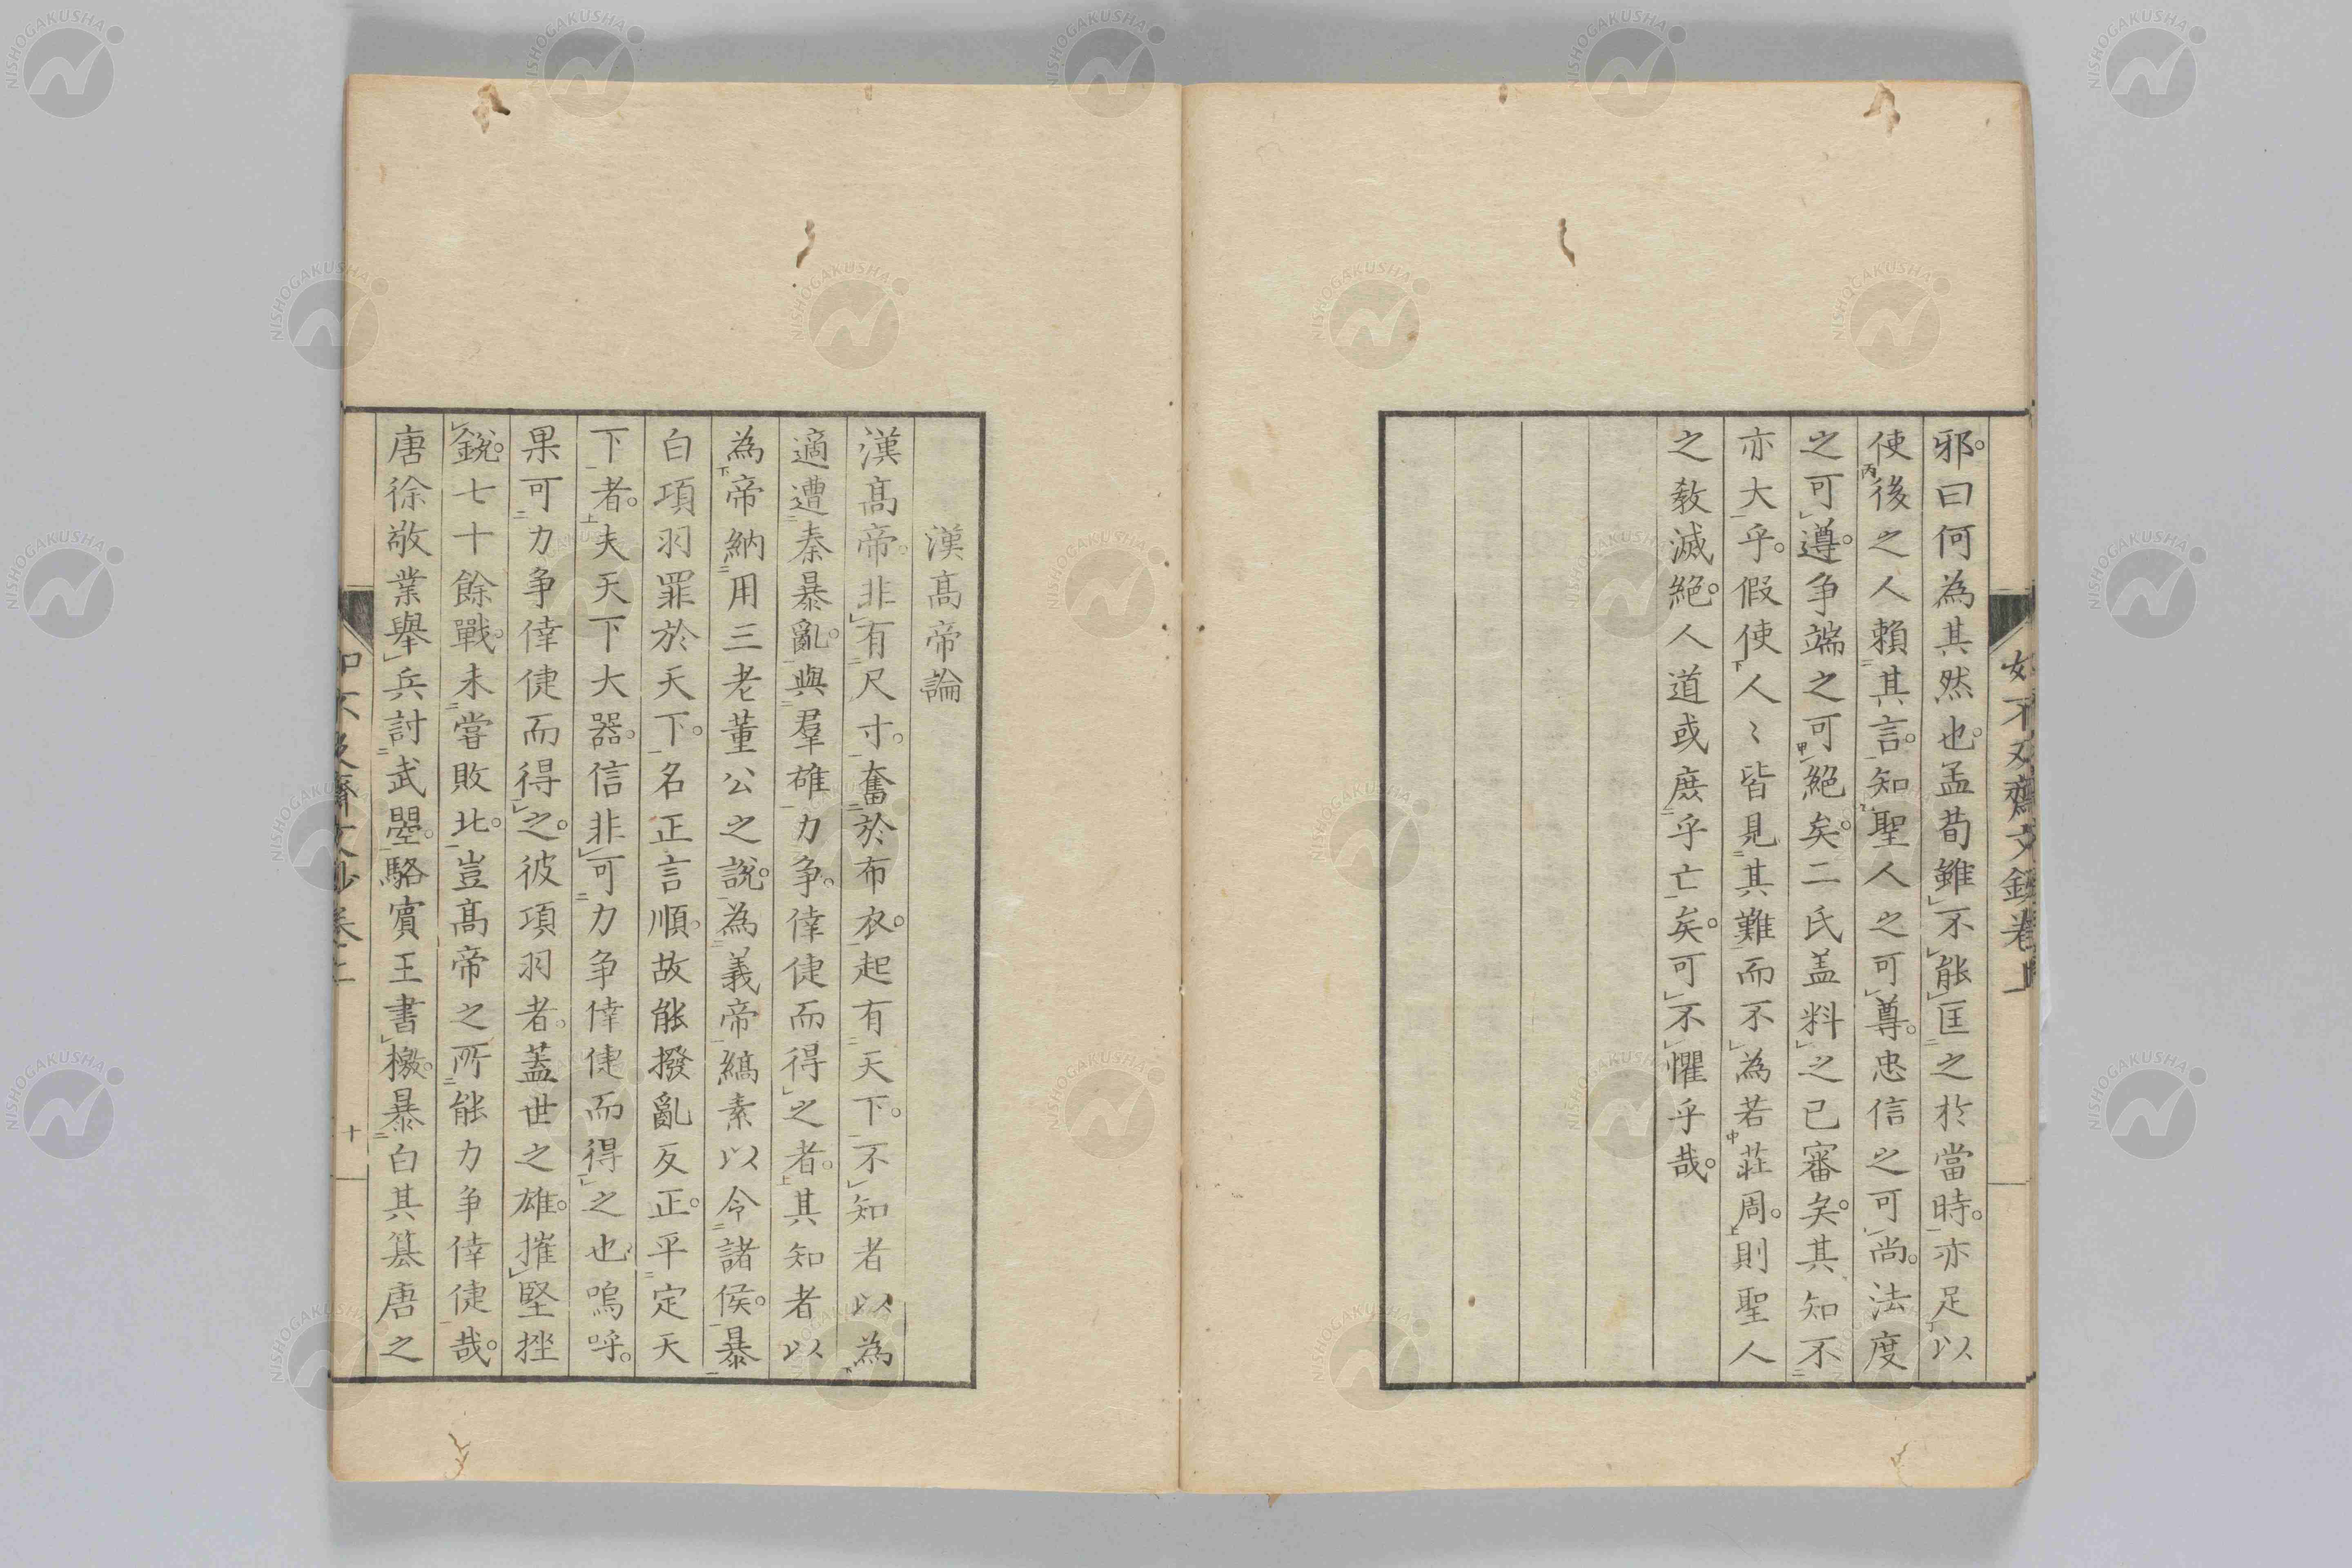 邪。曰何為其然也。孟荀雖不能匡之於當時。亦足以
使後之人賴其言。知聖人之可尊。忠信之可尚。法度
之可遵。争端之可絕矣。二氏盖料之已審矣。其知不
亦大乎。假使人〻皆見其難而不為若莊周。則聖人
之敎滅絕。人道或庶乎亡矣。可不懼乎哉。
漢髙帝論
漢髙帝。非有尺寸。奮於布衣。起有天下。不知者以為
適遭秦暴亂。與羣雄力争。倖倢而得之者。其知者以
為帝納用三老董公之說。為義帝縞素以令諸侯。暴
白項羽罪於天下。名正言順。故能撥亂反正。平定天
下者。夫天下大器。信非可力争倖倢而得之也。嗚呼。
果可力争倖倢而得之。彼項羽者。蓋世之雄。摧堅挫
銳。七十餘戰。未嘗敗北。豈髙帝之所能力争倖倢哉。
唐徐敬業舉兵討武曌。駱賓王書檄。暴白其簒唐之
十